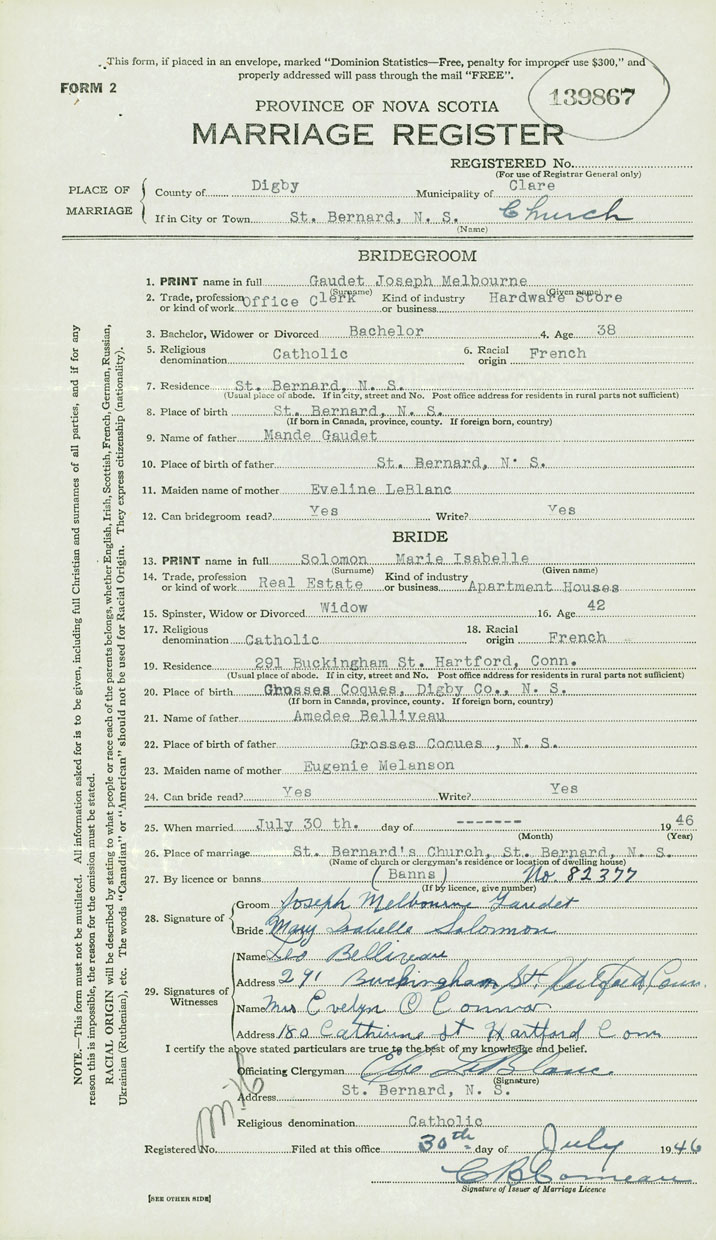 This form, if placed in an envelope, marked "Dominion Statistics—Free, penalty for improper use $300," and
properly addressed will pass through the mail "FREE".
FORM 2
139867
PROVINCE OF NOVA SCOTIA
MARRIAGE REGISTER
REGISTERED No.
(For use of Registrar General only)
PLACE OF MARRIAGE
County of Digby Municipality of Clare
If in City or Town St. Bernard, N. S. Church
(Name)
BRIDEGROOM
1. PRINT name in full Gaudet Joseph Melbourne
(Surname) (Given name)
2. Trade, profession or kind of work Office Clerk Kind of industry or business Hardware Store
3. Bachelor, Widower or Divorced Bachelor 4. Age 38
5. Religious denomination Catholic 6. Racial origin French
7. Residence St. Bernard, N. S.
(Usual place of abode. If in city, street and No. Post office address for residents in rural parts not sufficient)
8. Place of birth St. Bernard, N. S.
(If born in Canada, province, county. If foreign born, country)
9. Name of father Mande Gaudet
10. Place of birth of father St. Bernard, N. S.
11. Maiden name of mother Eveline LeBlanc
12. Can bridegroom read? Yes Write? Yes
BRIDE
13. PRINT name in full Solomon Marie Isabelle
(Surname) (Given name)
14. Trade, profession or kind of work Real Estate Kind of industry or business Apartment Houses
15. Spinster, Widow or Divorced Widow 16. Age 42
17. Religious denomination Catholic 18. Racial origin French
19. Residence 291 Buckingham St. Hartford, Conn.
(Usual place of abode. If in city, street and No. Post office address for residents in rural parts not sufficient)
20. Place of birth Grosses Coques, Digby Co., N. S.
(If born in Canada, province, county. If foreign born, country)
21. Name of father Amedee Belliveau
22. Place of birth of father Grosses Coques, N. S.
23. Maiden name of mother Eugenie Melanson
24. Can bride read? Yes Write? Yes
25. When married July 30 th. day of ------- 19 46
(Month) (Year)
26. Place of marriage St. Bernard's Church, St. Bernard, N. S.
(Name of church or clergyman's residence or location of dwelling house)
27. By licence or banns (Banns) No. 82377
(If by licence, give number)
28. Signature of
Groom Joseph Melbourne Gaudet
Bride Mary Isabelle Solomon
29. Signatures of Witnesses
Name Leo Belliveau
Address 291 Buckingham St. Hartford Conn.
Name Mrs Evelyn O Connor
Address 180 Catherine St Hartford Conn
I certify the above stated particulars are true to the best of my knowledge and belief.
Officiating Clergyman LeBlanc
(Signature)
Address St. Bernard, N. S.
Religious denomination Catholic
Registered No. Filed at this office 30th day of July 1946
C B Comeau
Signature of Issuer of Marriage Licence
[SEE OTHER SIDE]
NOTE.—This form must not be mutilated. All information asked for is to be given, including full Christian and surnames of all parties, and if for any
reason this is impossible, the reason for the omission must be stated.
RACIAL ORIGIN will be described by stating to what people or race each of the parents belongs, whether English, Irish, Scottish, French, German, Russian,
Ukrainian (Ruthenian), etc. The words "Canadian" or "American" should not be used for Racial Origin. They express citizenship (nationality).